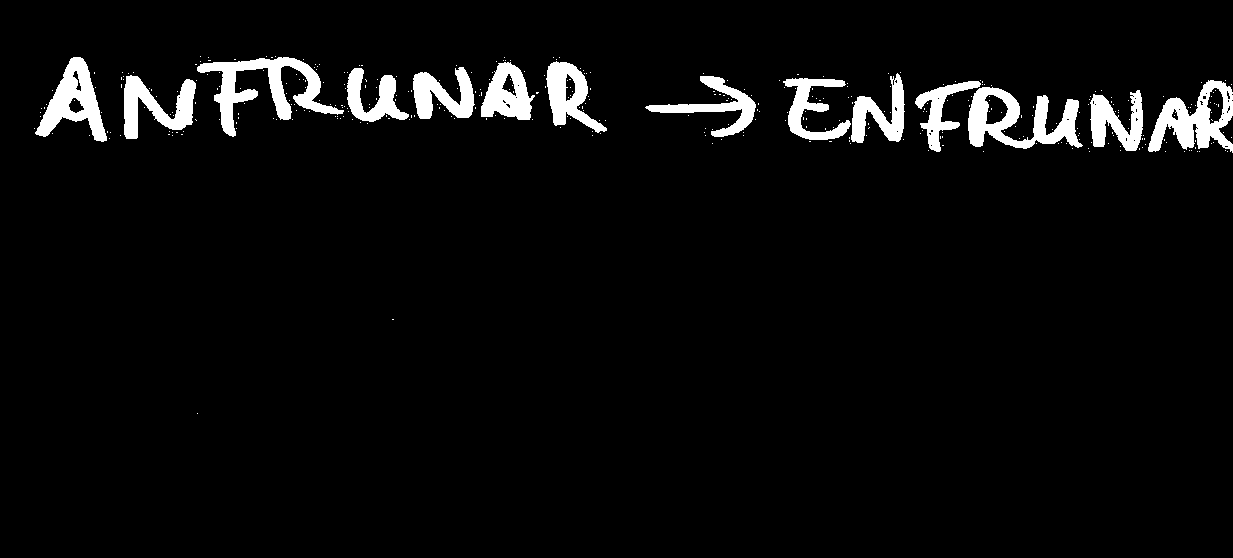 ANFRUNAR → ENFRUNAR